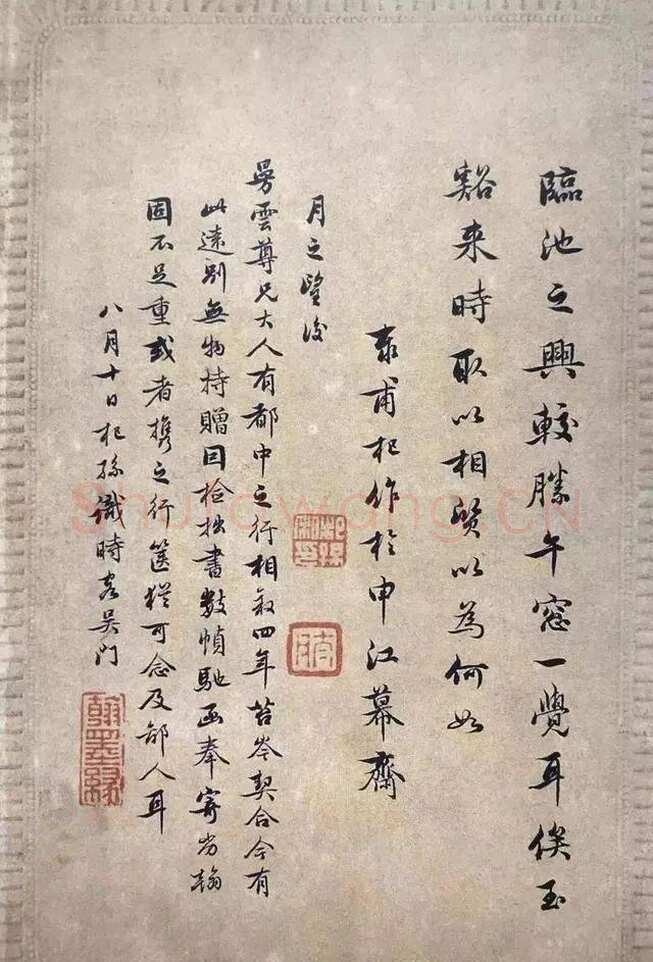 臨池之興較勝午窓一覺耳俟玉
谿来時取以相質以為何如
甫杞作於申江幕齋
月之望後
曼雲尊兄大人有都中之行相叙四年苔岑契合今有
此遠别無物持贈因檢拙書數幀馳函奉寄翰
固不足重或者攜之行篋猶可念及鄙人耳
八月十日杞孫識時客吳門
翰墨緣
Shufawang.CN